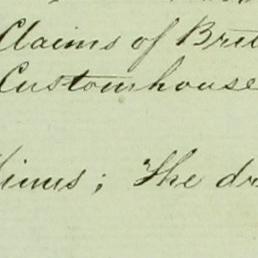 Claims of Brit
Customhouse
; The dr